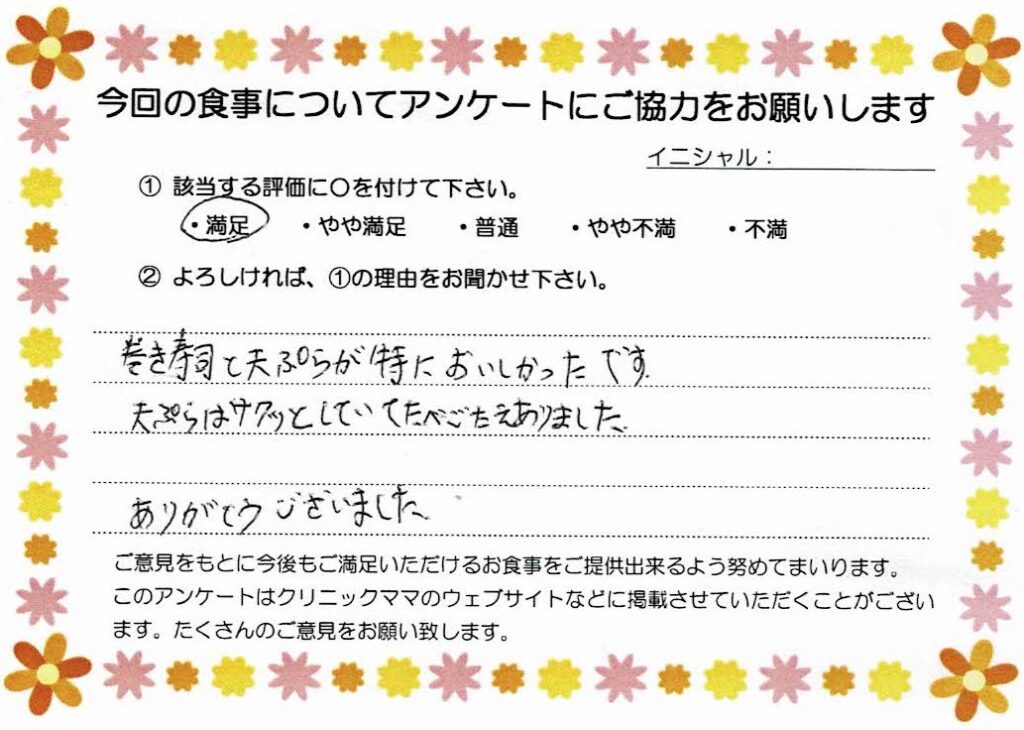 今回の食事についてアンケートにご協力をお願いします
イニシャル：
① 該当する評価に〇を付けて下さい。
・満足 ・やや満足 ・普通 ・やや不満 ・不満
② よろしければ、①の理由をお聞かせ下さい。
巻き寿司と天ぷらが特においしかったです。
天ぷらはサクッとしていてたべごたえありました。
ありがとウございました。
ご意見をもとに今後もご満足いただけるお食事をご提供出来るよう努めてまいります。
このアンケートはクリニックママのウェブサイトなどに掲載させていただくことがござい
ます。たくさんのご意見をお願い致します。